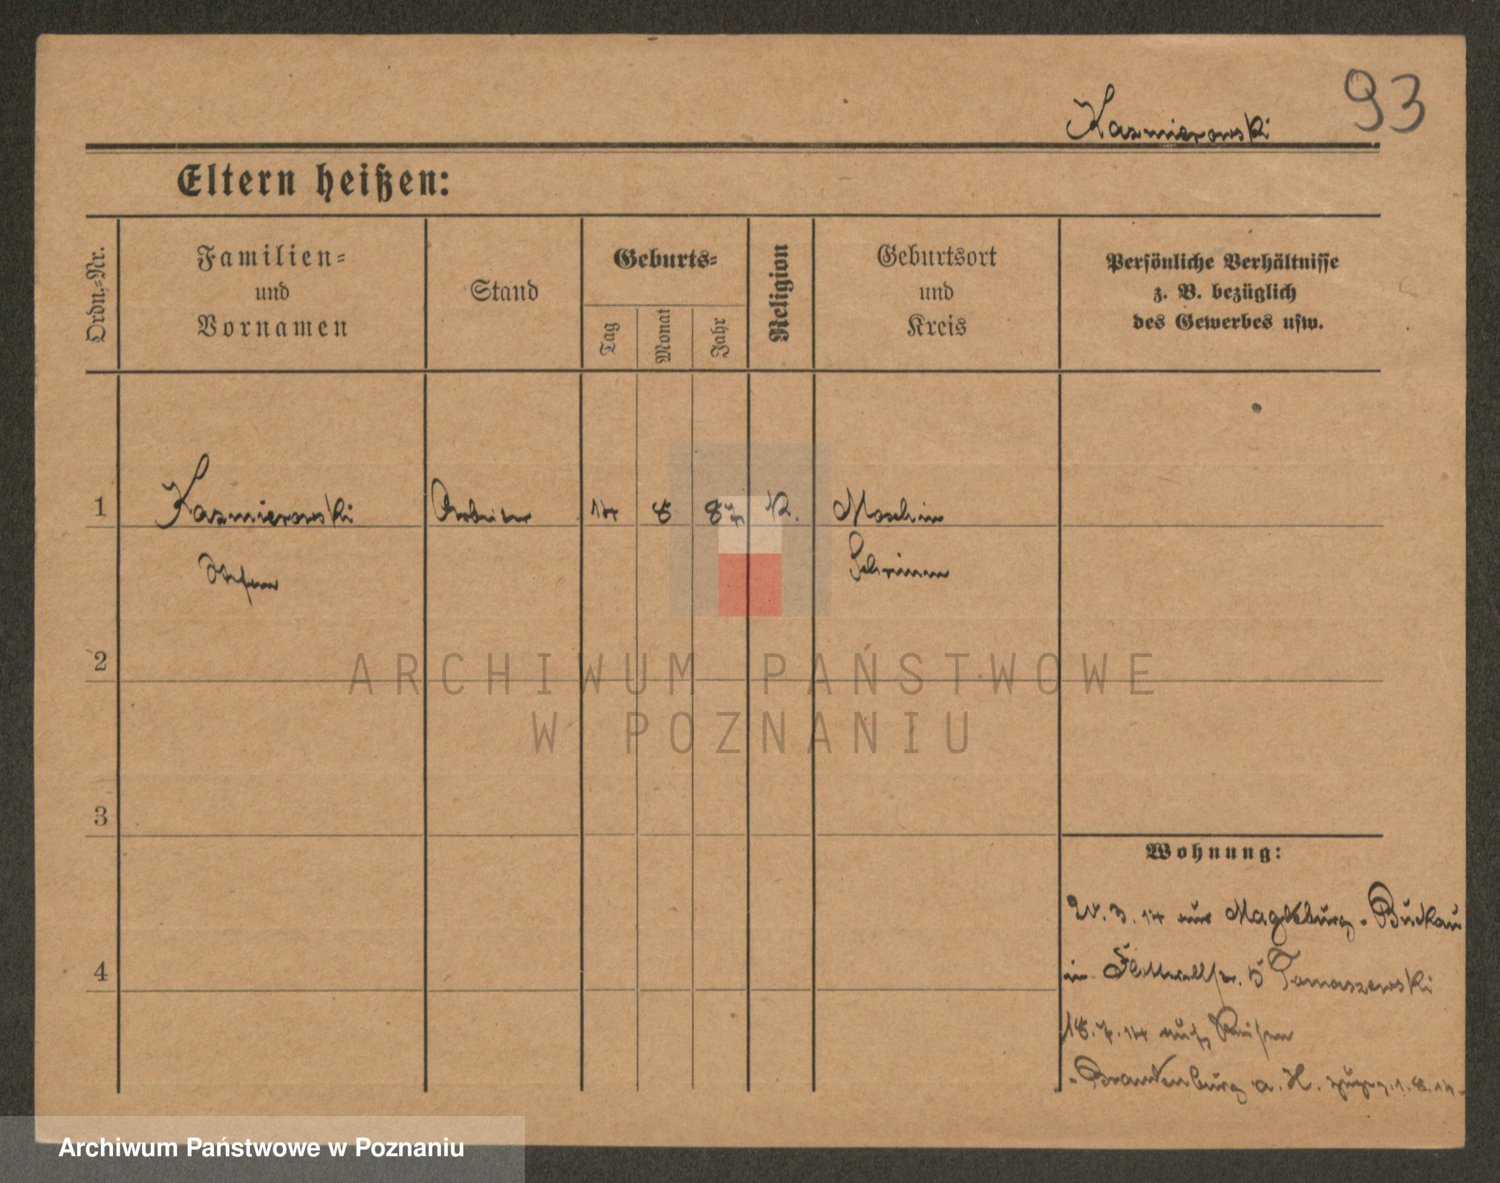 93
Kazmierowski
Eltern heißen:
Ordn.-Nr.
Familien-
und
Vornamen
Stand
Geburts-
Tag
Monat
Jahr
Religion
Geburtsort
und
Kreis
Persönliche Verhältnisse
z. B. bezüglich
des Gewerbes usw.
1 Kazmierowski Arbeiter 14 8 87 K. Moschin
Stefan Schrimm
2
3
4
Wohnung:
3. 14 aus Magdeburg-Buckau
in 5 Tomaszewski
18. 7. 14 auf Reisen
Brandenburg a. H. 1. 8. 14
ARCHIWUM PAŃSTWOWE
W POZNANIU
Archiwum Państwowe w Poznaniu